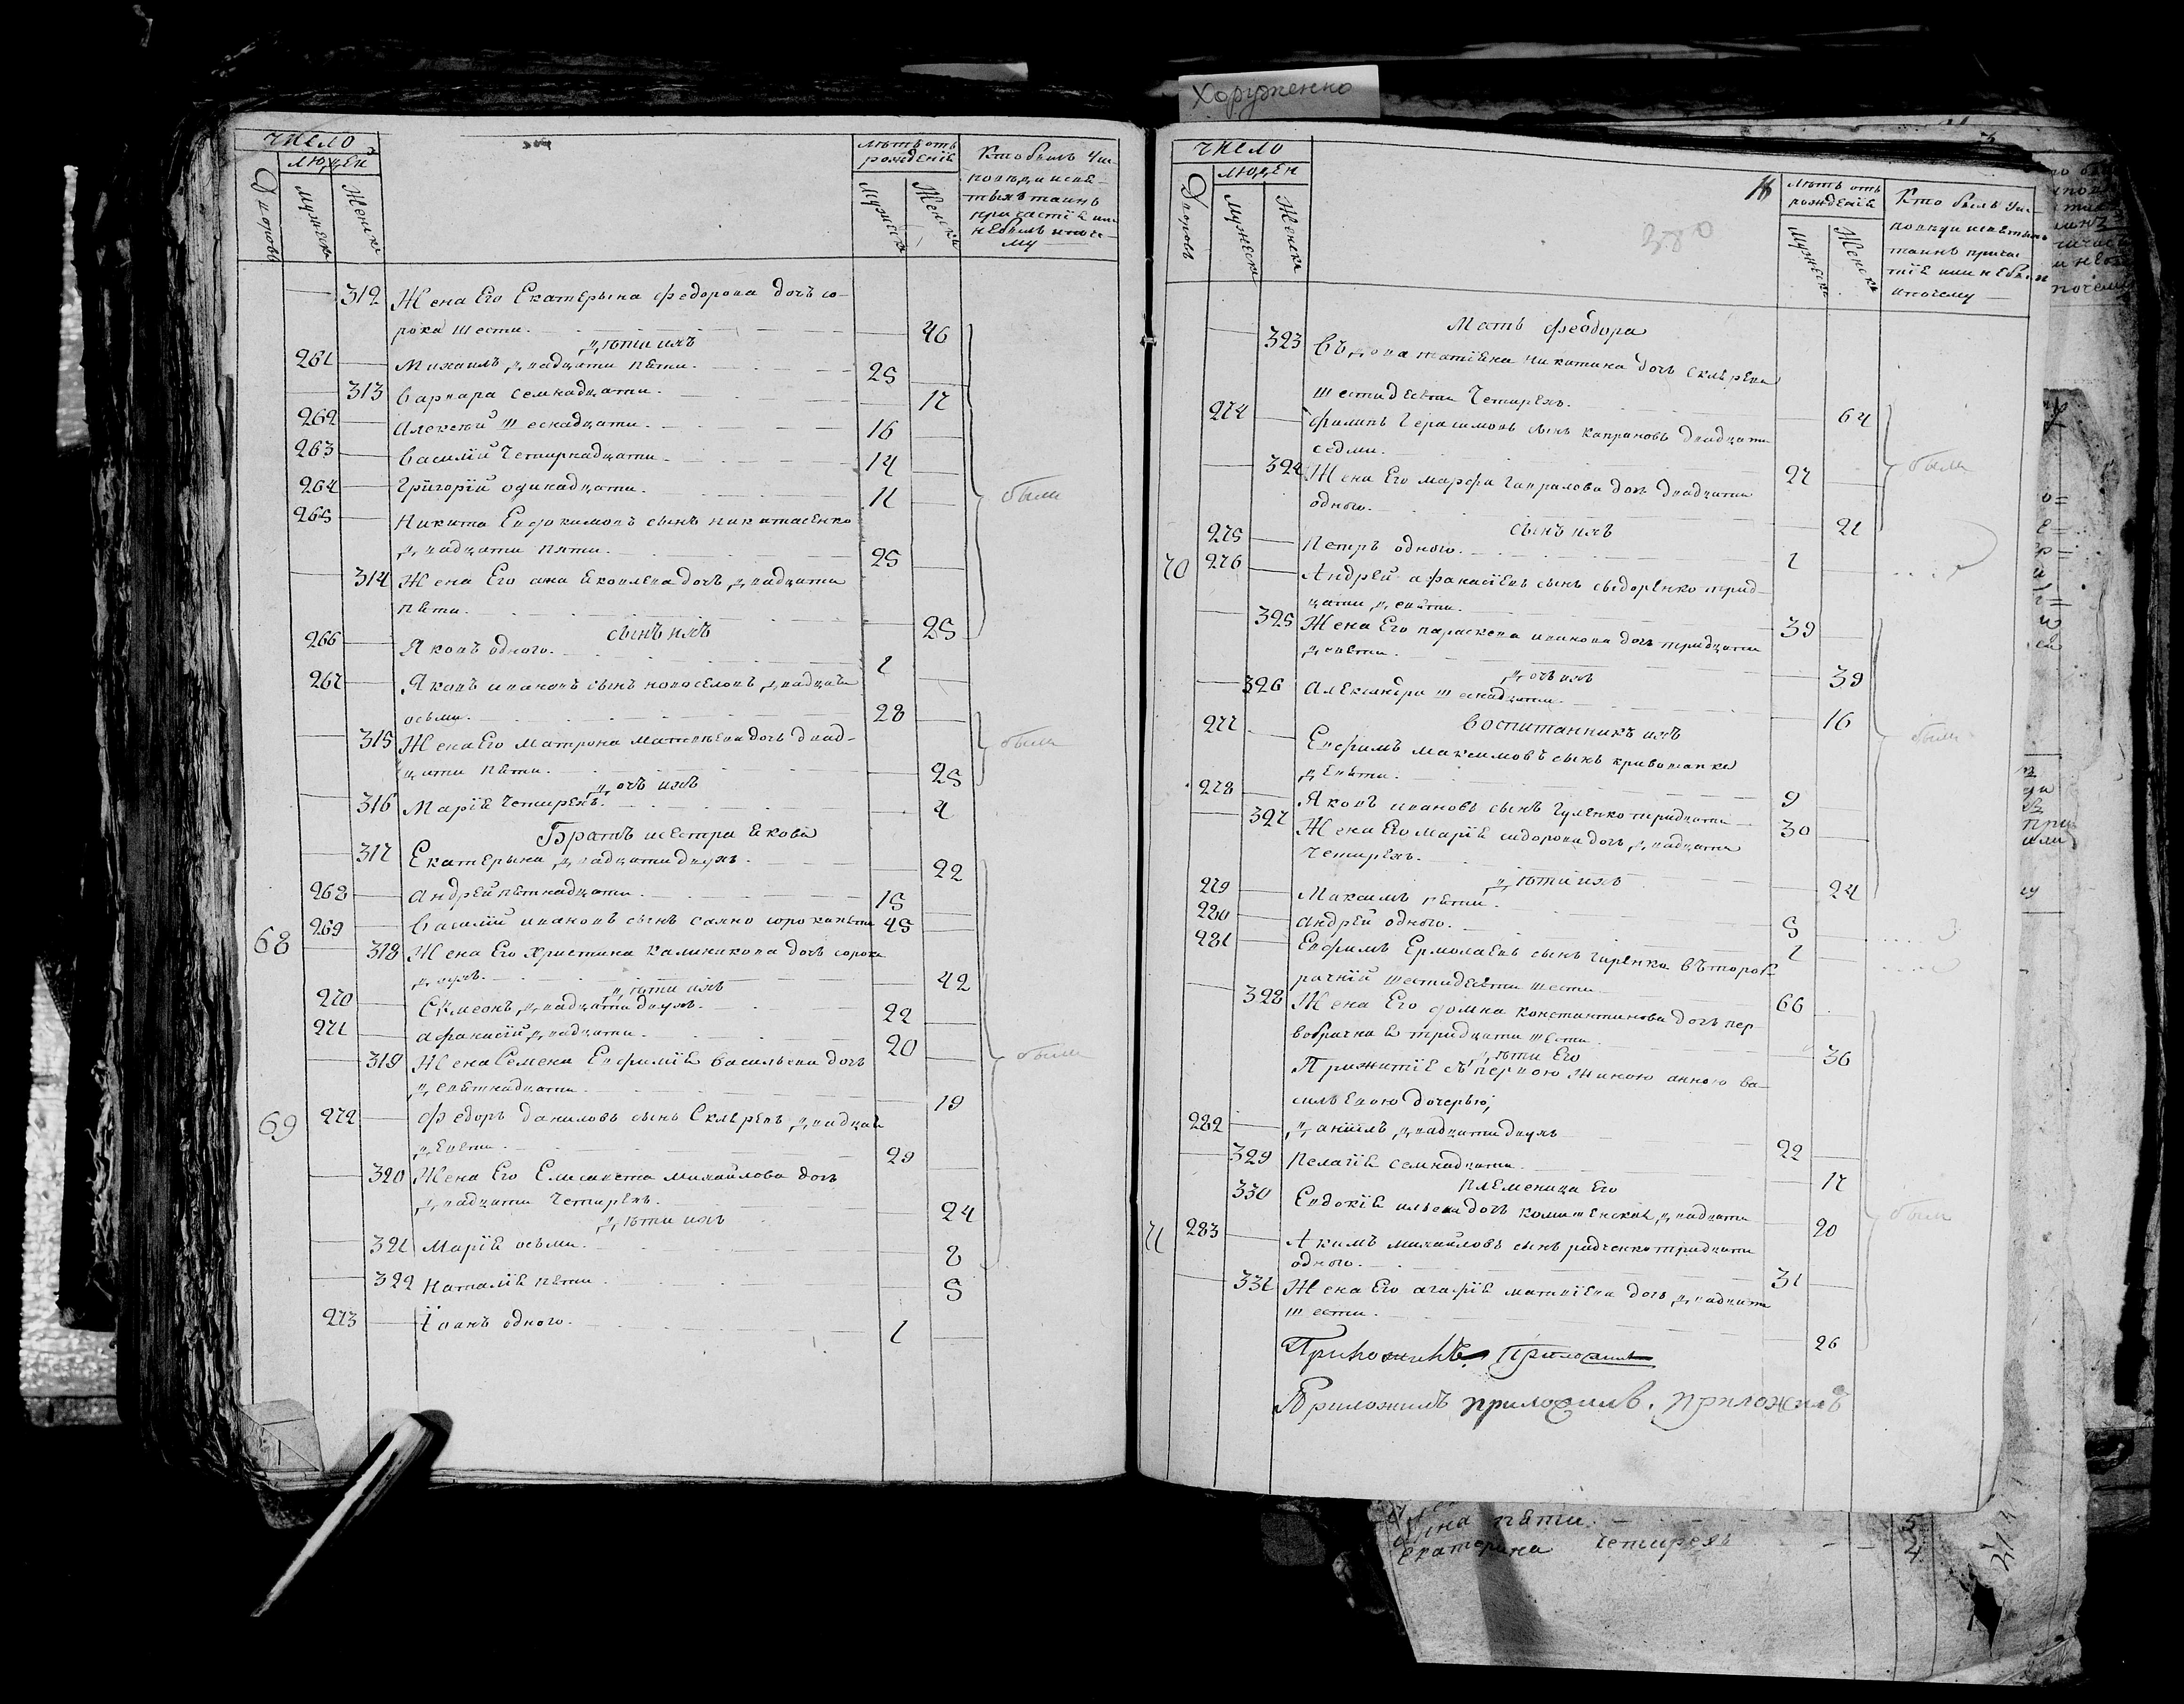 Хоруженко
число
людей
Дворовъ
Мужеска
Женска
летъ отъ рожденiя
Мужеска
Женска
Кто былъ у ис-
поведи и свя-
тыхъ таинъ
причастiя или
не былъ и поче-
му
312 Жена Его Екатерына Федорова дочъ со-
рока шести. 46
Дети ихъ
261 Михаилъ двадцати пяти. 25
313 Варвара семнадцати. 17
262 Алексей шеснадцати. 16
263 Василiй Четырнадцати. 14
264 Григорiй одинадцати. 11
265 Никита Евфокимовъ сынъ никитасенко
двадцати пяти. 25
314 Жена Его ана яковлева дочъ двадцати
пяти. 25
сынъ ихъ
266 Яковъ одного. 1
267 Яковъ ивановъ сынъ новоселовъ двадцати
осьми. 28
315 Жена Его Матрона Матвеева дочъ двад-
цати пяти. 25
дочъ ихъ
316 Марiя Четырехъ. 4
Братъ и сестра якова
317 Екатерына двадцати двухъ. 22
268 андрей пятнадцати. 15
68 269 Василiй ивановъ сынъ саяно сорокапяти 45
318 Жена Его Христина Калиникова дочъ сорока
двухъ. 42
дети ихъ
270 Симеонъ двадцати двухъ. 22
271 афанасiй двадцати. 20
319 Жена Семена Евфимiя Васильева дочъ
девятнадцати. 19
69 272 Федоръ даниловъ сынъ Скляревъ двадцати
девяти. 29
320 Жена Его Елисавета михайлова дочъ
двадцати Четырехъ. 24
дети ихъ
321 Марiя осьми. 8
322 Наталiя пяти. 5
273 Iоанъ одного. 1
были
были
были
число
людей
Дворовъ
Мужеска
Женска
380
летъ отъ рожденiя
Мужеска
Женска
Кто былъ у ис-
поведи и святыхъ
таинъ прича-
стiя или не былъ
и почему
Мать феодора
323 Въдова татiяна никитина дочъ Склярева
шестидесяти Четырехъ. 64
274 Филипъ Герасимовъ сынъ каправовъ двадцати
седми. 27
324 Жена Его марфа гаврилова дочъ двадцати
одного. 21
сынъ ихъ
275 Петръ одного. 1
70 276 Андрей афанасiевъ сынъ сидоренко трид-
цати девяти. 39
325 Жена Его параскева иванова дочъ тридцати
девяти. 39
дочъ ихъ
326 Александра шеснадцати. 16
воспитанникъ ихъ
277 Евфимъ максимовъ сынъ кривошапка
девяти. 9
278 Яковъ ивановъ сынъ Гуленко тридцати 30
327 Жена Его марiя сидорова дочъ двадцати
четырехъ. 24
дети ихъ
279 Максимъ пяти. 5
280 андрей одного. 1
281 Евфимъ Ермолаевъ сынъ гиренко въторо-
рачнiй шестидесяти шести 66
328 Жена Его домна константинова дочъ пер-
вобрачная тридцати шести. 36
дети Его
Прижитiя съ первою жиною анною ва-
сильевою дочерью;
282 данiилъ двадцати двухъ 22
329 Пелагiя семнадцати. 17
племеница Его
330 Евдокiя ильева дочъ двадцати 20
71 283 Акимъ михайловъ сынъ радченко тридцати
одного. 31
331 Жена Его агафiя матвiева дочъ двадцати
шести. 26
были
были
были
Приложилъ приложилъ. приложилъ
пяти 5
Екатерина Четырехъ 4